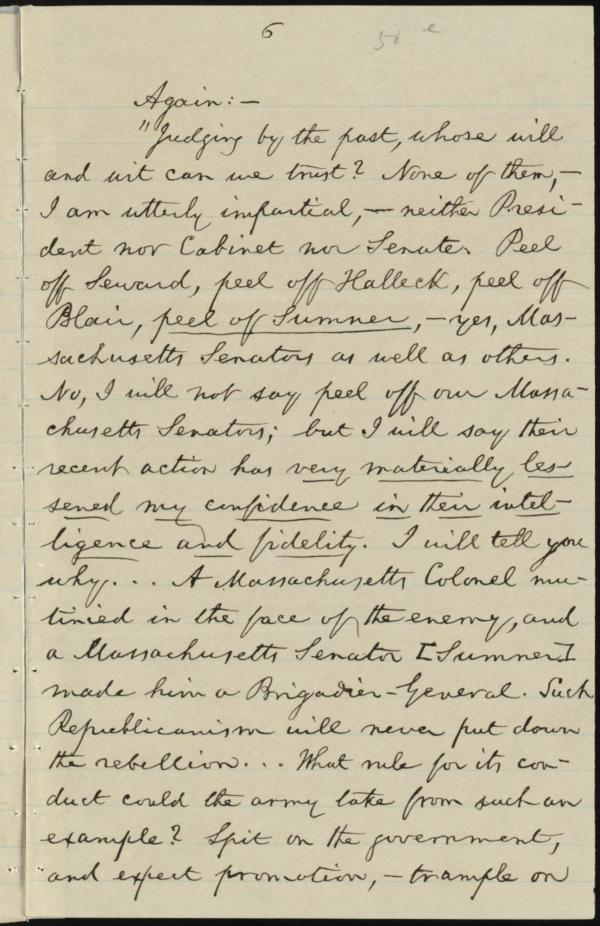 6
50 e
Again:—
"Judging by the past, whose will
and wit can we trust? None of them,—
I am utterly impartial,— neither Presi-
dent nor Cabinet nor Senate. Peel
off Seward, peel off Halleck, peel off
Blair, peel of Sumner,—yes, Mas-
sachusetts Senators as well as others.
No, I will not say peel off our Massa-
chusetts Senators; but I will say their
recent action has very materially les-
sened my confidence in their intel-
ligence and fidelity. I will tell you
why... A Massachusetts Colonel mu-
tinied in the face of the enemy, and
a Massachusetts Senator [Sumner]
made him a Brigadier-General. Such
Republicanism will never put down
the rebellion... What rule for its con-
duct could the army take from such an
example? Spit on the government,
and expect promotion,— trample on